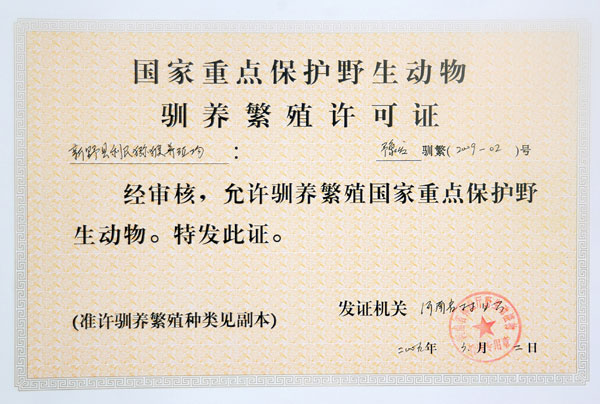 国家重点保护野生动物
驯养繁殖许可证
新野县利民猕猴养殖场：
驯繁(2009-02)号
经审核，允许驯养繁殖国家重点保护野
生动物。特发此证。
发证机关 河南省林业厅
(准许驯养繁殖种类见副本)
二00九年 月二日